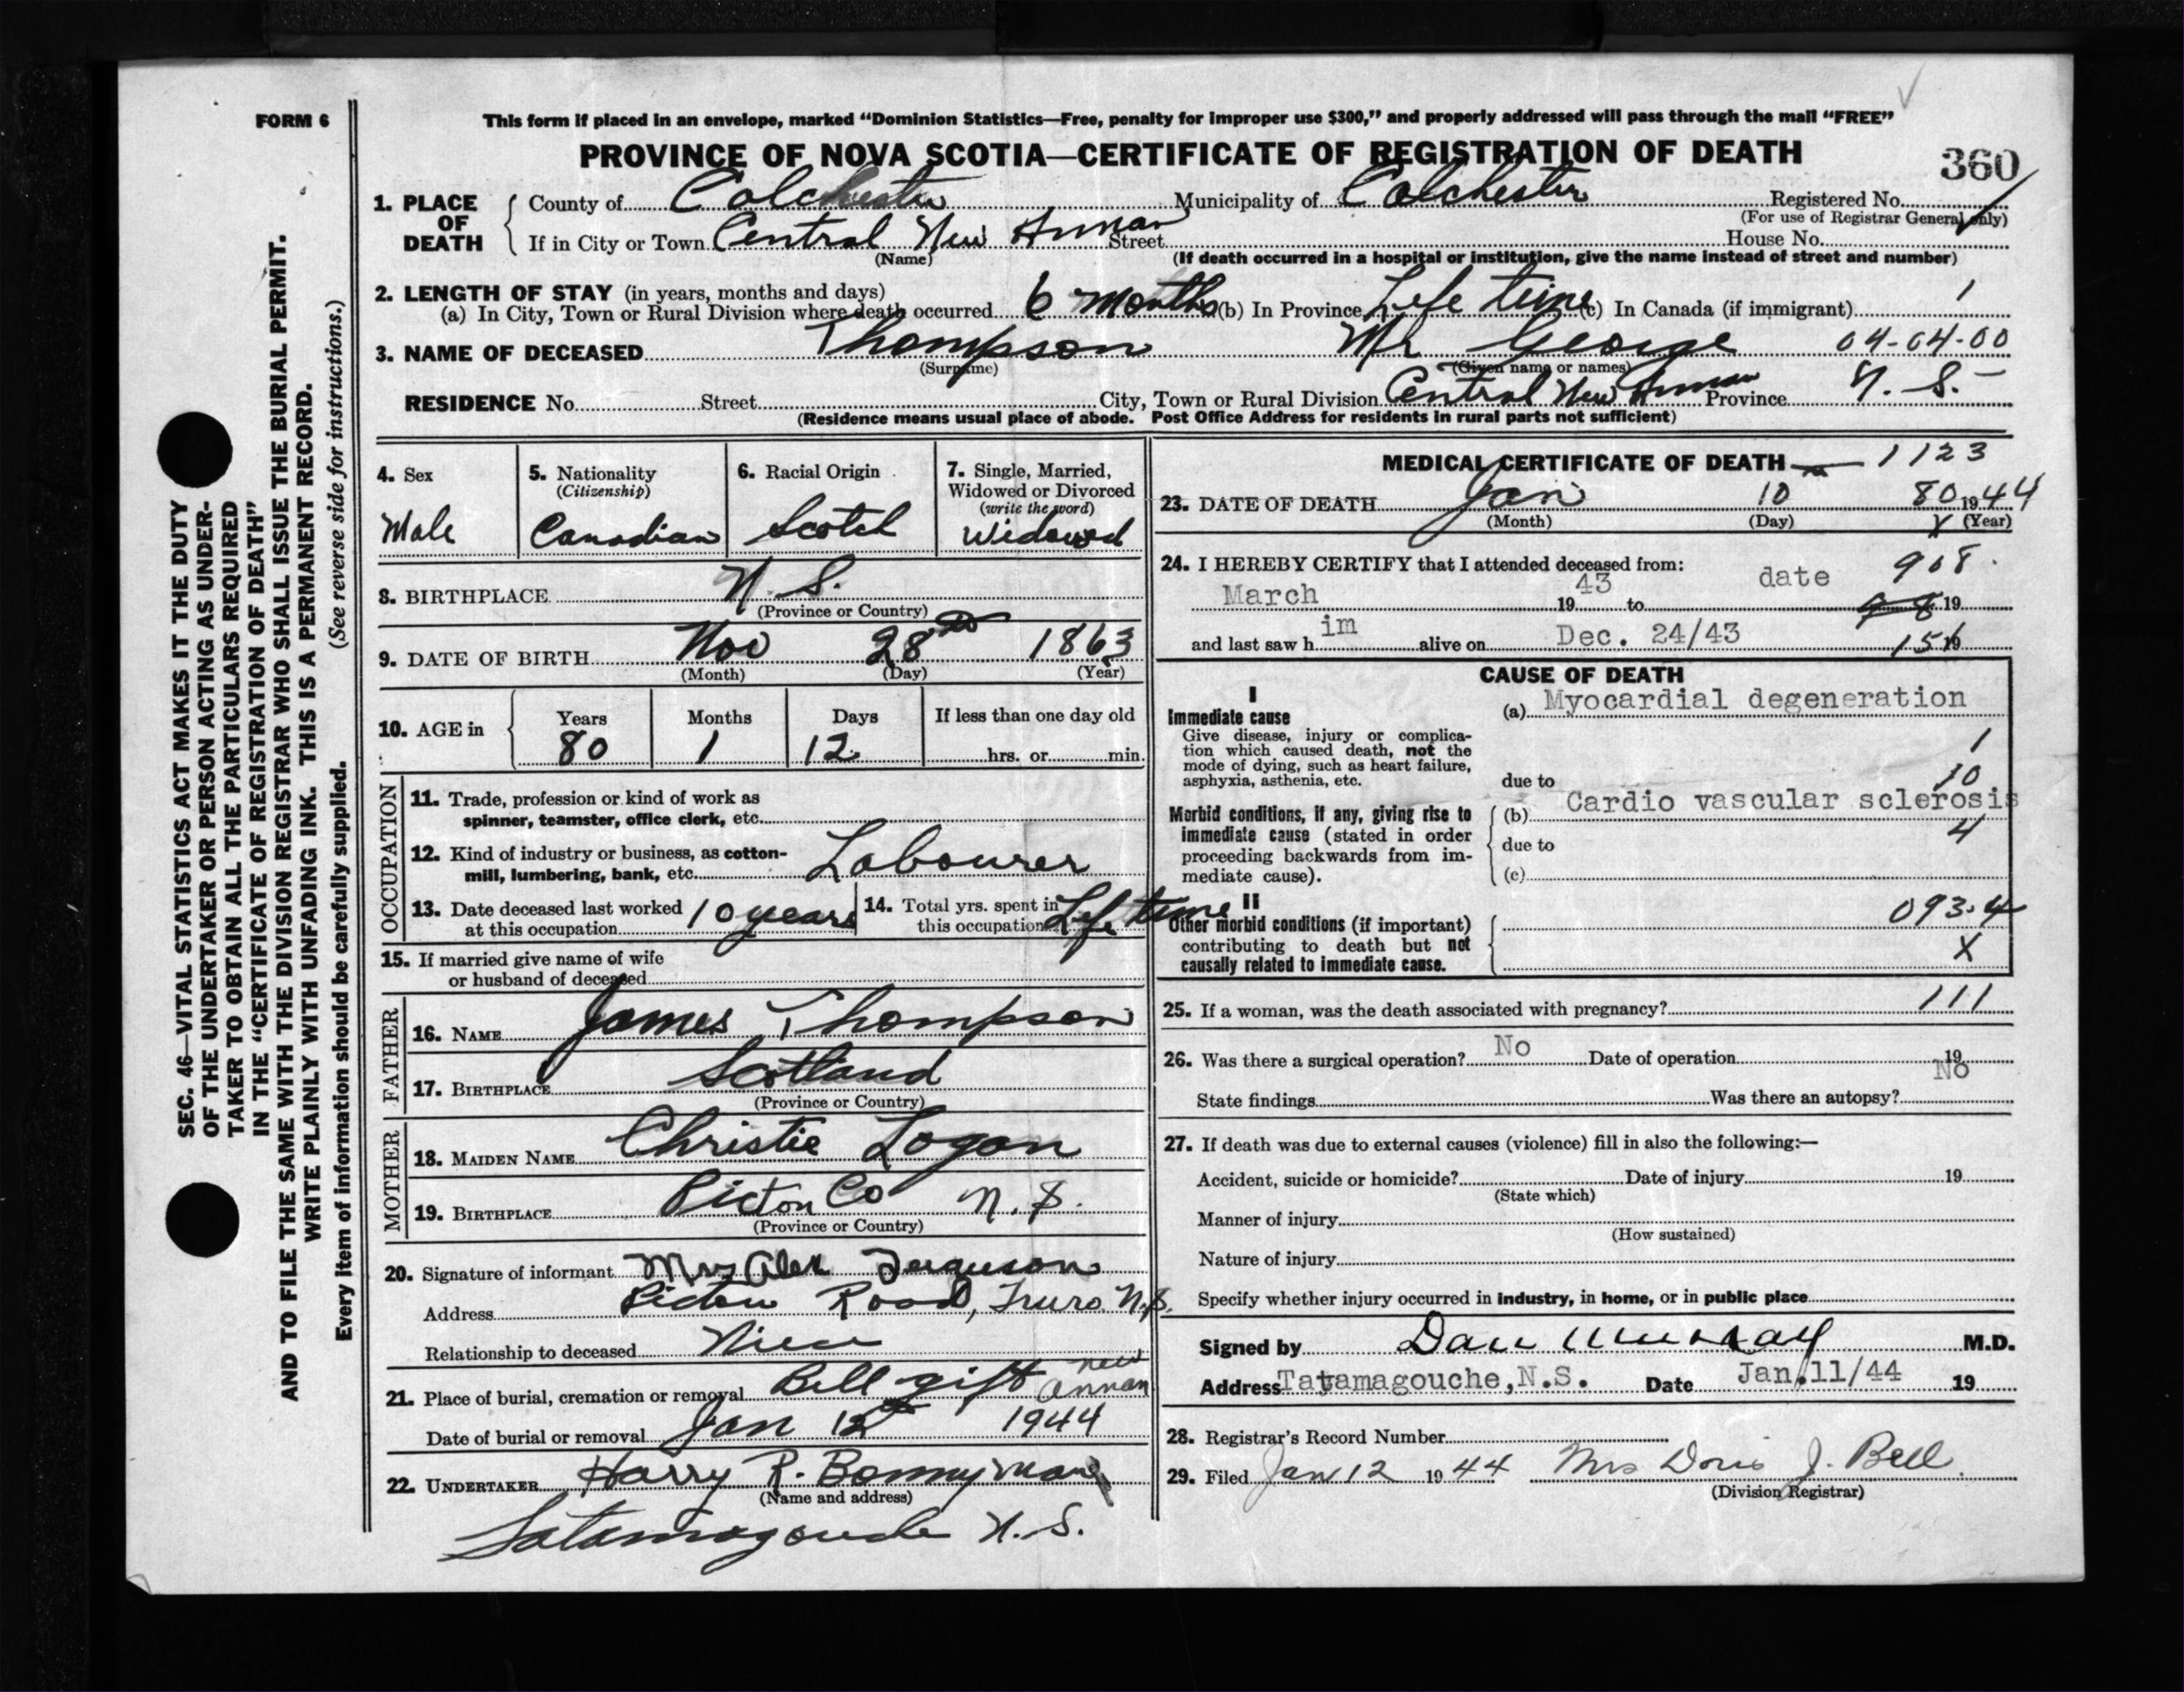 FORM 6
This form if placed in an envelope, marked "Dominion Statistics—Free, penalty for improper use $300," and properly addressed will pass through the mail "FREE"
PROVINCE OF NOVA SCOTIA—CERTIFICATE OF REGISTRATION OF DEATH
360
1. PLACE OF DEATH
County of Colchester Municipality of Colchester Registered No.
(For use of Registrar General only)
If in City or Town Central New Annan Street House No.
(Name) (If death occurred in a hospital or institution, give the name instead of street and number)
2. LENGTH OF STAY (in years, months and days)
(a) In City, Town or Rural Division where death occurred 6 months (b) In Province Life time (c) In Canada (if immigrant) 1
3. NAME OF DECEASED Thompson Mr George 04-04-00
(Surname) (Given name or names)
RESIDENCE No. Street City, Town or Rural Division Central New Annan Province N. S.
(Residence means usual place of abode. Post Office Address for residents in rural parts not sufficient)
4. Sex
Male
5. Nationality
(Citizenship)
Canadian
6. Racial Origin
Scotch
7. Single, Married,
Widowed or Divorced
(write the word)
Widowed
8. BIRTHPLACE N. S.
(Province or Country)
9. DATE OF BIRTH Nov 28th 1863
(Month) (Day) (Year)
10. AGE in
Years Months Days If less than one day old
80 1 12 hrs. or min.
OCCUPATION
11. Trade, profession or kind of work as
spinner, teamster, office clerk, etc.
12. Kind of industry or business, as cotton-
mill, lumbering, bank, etc. Labourer
13. Date deceased last worked
at this occupation 10 years
14. Total yrs. spent in
this occupation Life time
15. If married give name of wife
or husband of deceased
FATHER
16. NAME James Thompson
17. BIRTHPLACE Scotland
(Province or Country)
MOTHER
18. MAIDEN NAME Christie Logan
19. BIRTHPLACE Picton Co N. S.
(Province or Country)
20. Signature of informant Mrs Alex Ferguson
Address Pictou Road, Truro N.S.
Relationship to deceased Niece
21. Place of burial, cremation or removal Bell gift New Annan
Date of burial or removal Jan 12 1944
22. UNDERTAKER Harry R. Bonnyman
(Name and address)
Tatamagouche N. S.
MEDICAL CERTIFICATE OF DEATH 1123
23. DATE OF DEATH Jan 10 80 1944
(Month) (Day) (Year)
24. I HEREBY CERTIFY that I attended deceased from: 908
March 1943 to date 19
and last saw him alive on Dec. 24/43 151 19
CAUSE OF DEATH
I
Immediate cause
Give disease, injury or complica-
tion which caused death, not the
mode of dying, such as heart failure,
asphyxia, asthenia, etc.
(a) Myocardial degeneration
1
due to 10
Morbid conditions, if any, giving rise to
immediate cause (stated in order
proceeding backwards from im-
mediate cause).
(b) Cardio vascular sclerosis
due to 4
(c)
II
Other morbid conditions (if important)
contributing to death but not
causally related to immediate cause.
093.4
X
25. If a woman, was the death associated with pregnancy? 111
26. Was there a surgical operation? No Date of operation 19
State findings Was there an autopsy? No
27. If death was due to external causes (violence) fill in also the following:—
Accident, suicide or homicide? Date of injury 19
(State which)
Manner of injury
(How sustained)
Nature of injury
Specify whether injury occurred in industry, in home, or in public place
Signed by Dan Murray M.D.
Address Tatamagouche, N.S. Date Jan. 11/44 19
28. Registrar's Record Number
29. Filed Jan 12 1944 Mrs Doris J. Bell
(Division Registrar)
SEC. 46—VITAL STATISTICS ACT MAKES IT THE DUTY
OF THE UNDERTAKER OR PERSON ACTING AS UNDER-
TAKER TO OBTAIN ALL THE PARTICULARS REQUIRED
IN THE "CERTIFICATE OF REGISTRATION OF DEATH"
AND TO FILE THE SAME WITH THE DIVISION REGISTRAR WHO SHALL ISSUE THE BURIAL PERMIT.
WRITE PLAINLY WITH UNFADING INK. THIS IS A PERMANENT RECORD.
Every item of information should be carefully supplied. (See reverse side for instructions.)